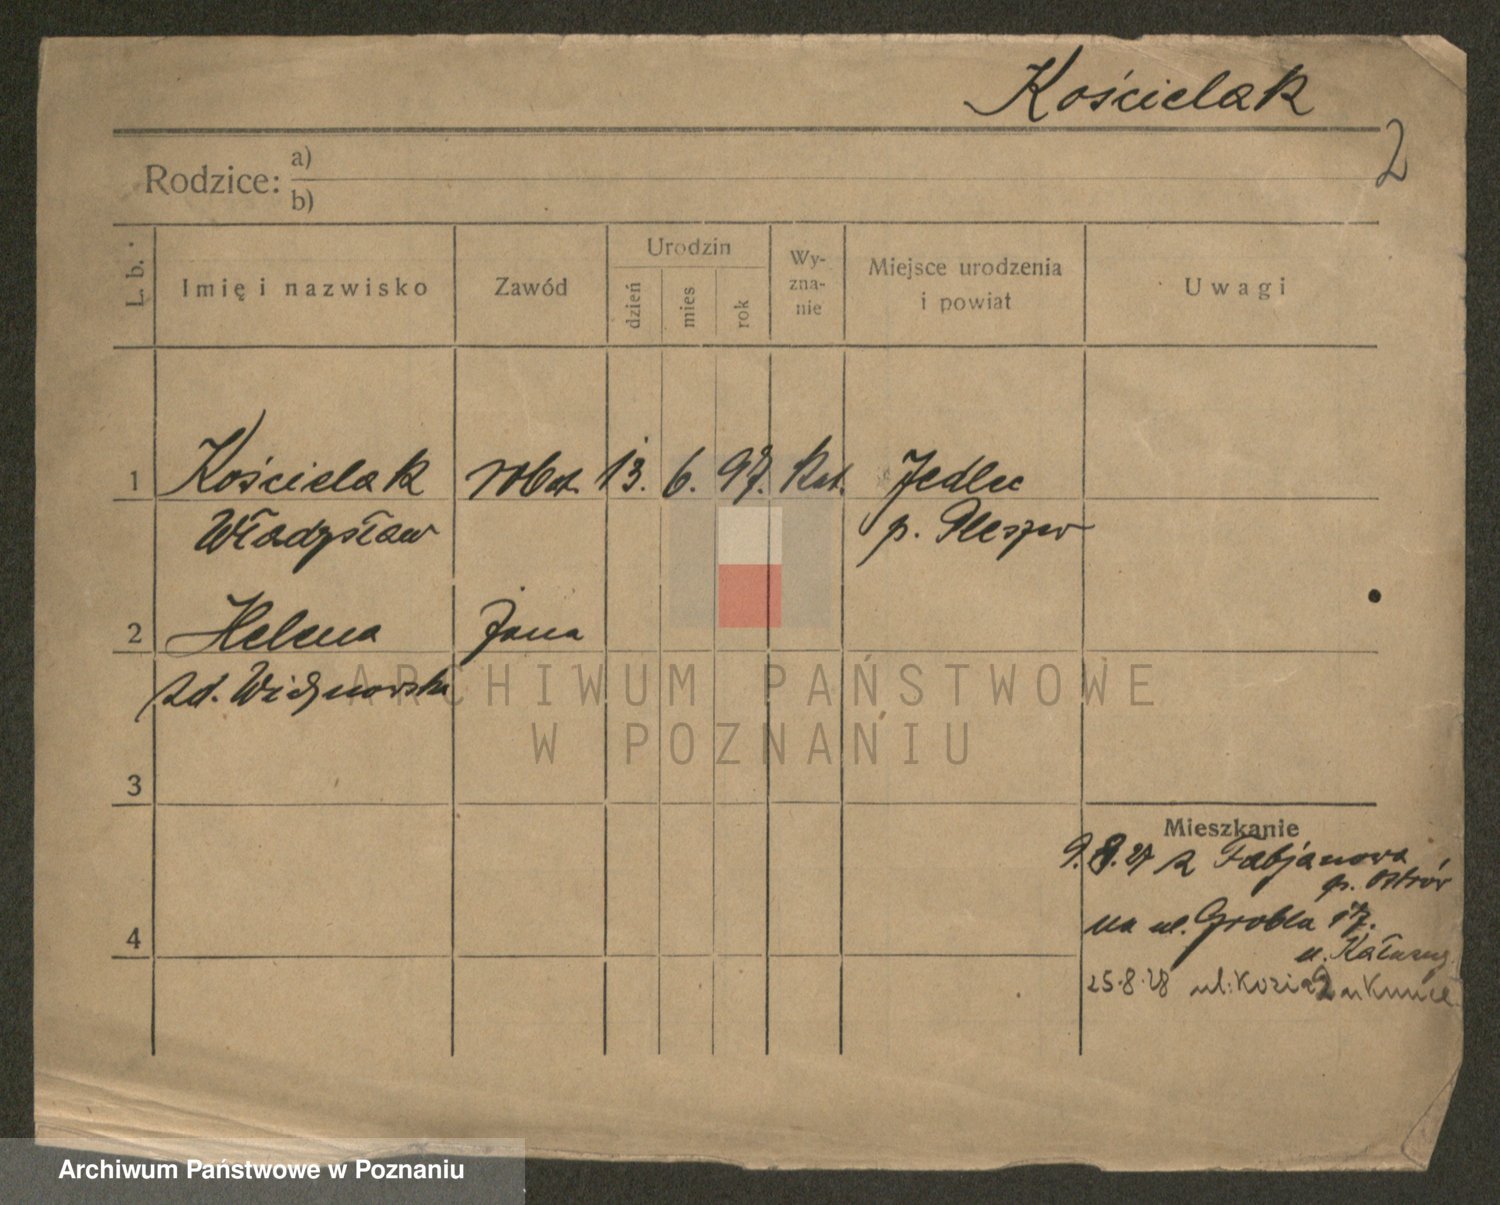 Kościelak
2
Rodzice: a)
b)
L. b.
Imię i nazwisko
Zawód
Urodzin
dzień
mies
rok
Wy-
zna-
nie
Miejsce urodzenia
i powiat
Uwagi
1 Kościelak robot. 13. 6. 97. kat. Jedlec
Władysław p. Pleszew
2 Helena żona
zd.
ARCHIWUM PAŃSTWOWE
W POZNANIU
3
Mieszkanie
9.8.27 z Fabjanowa
p. Ostrów
na ul. Grobla 17.
4
u.
25.8.28 ul. Kozia 2 u
Archiwum Państwowe w Poznaniu